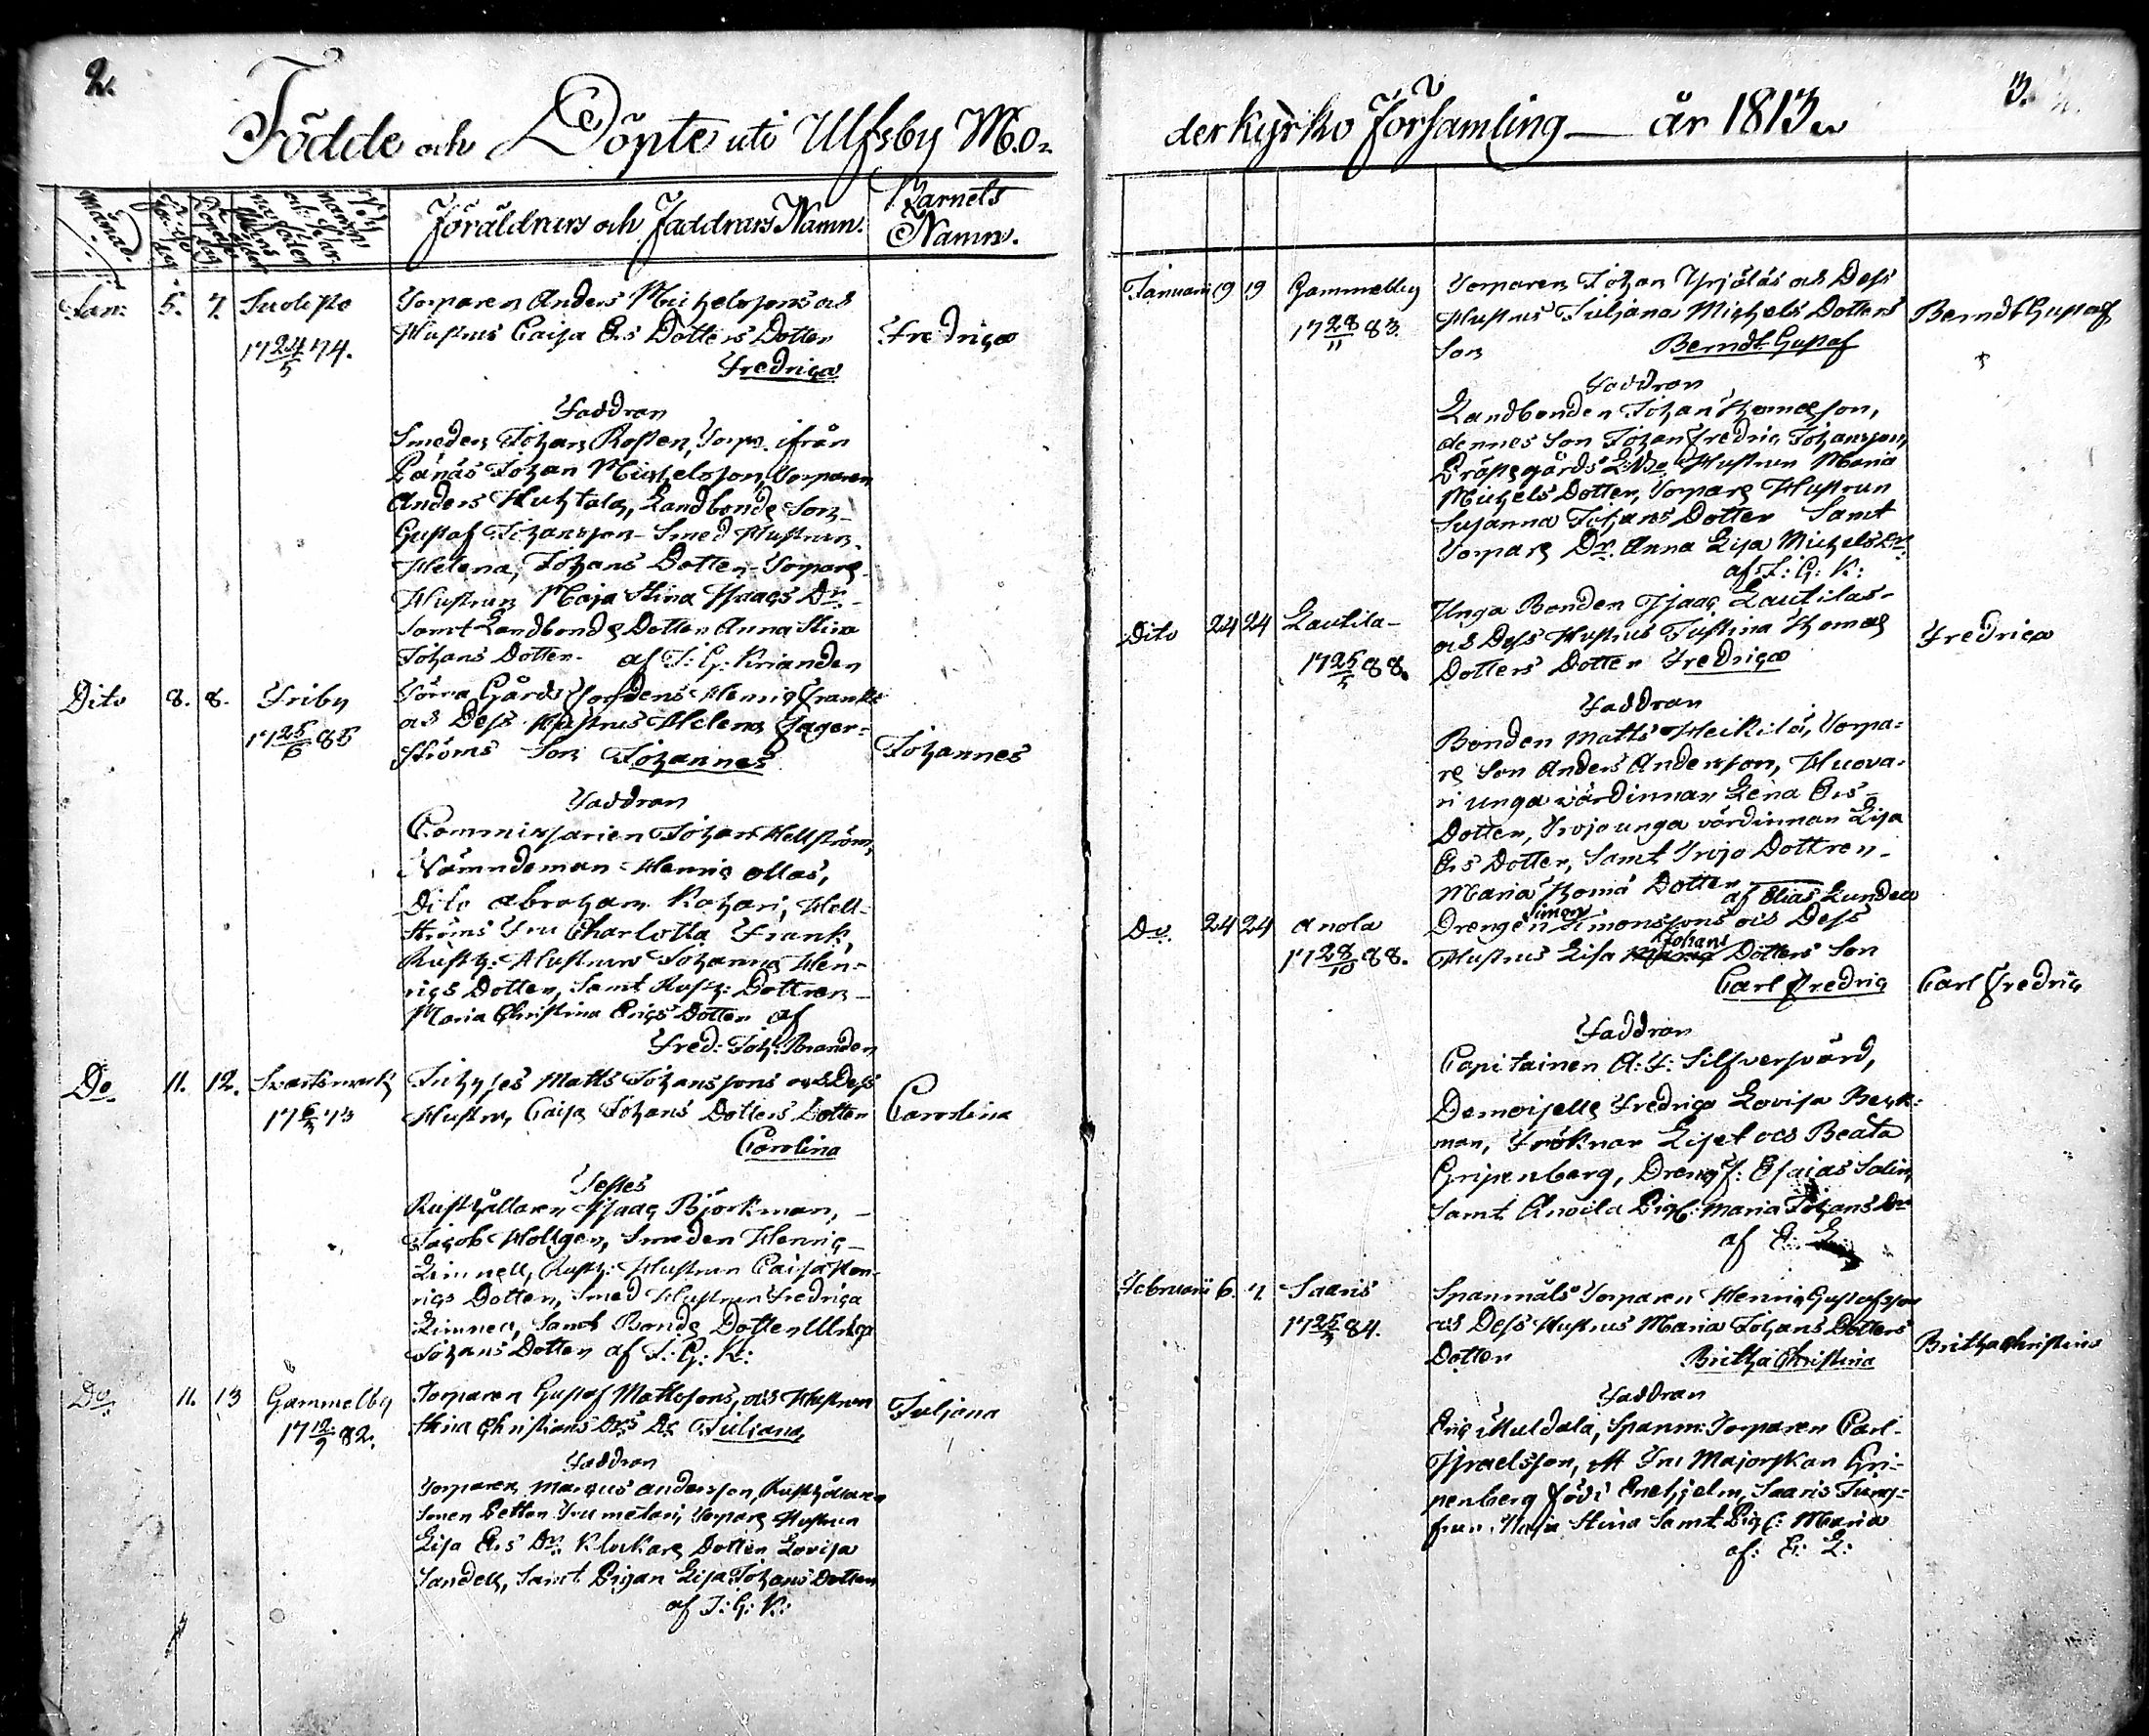 2.
Födde och Döpte uti Ulfsby Mo-
Månad.
Föräldrars och Faddrars Namn.
Barnets
Namn.
Jan: 5. 7. Suosisto
17 24/5 74.
Torparen Anders Michelssons och
Hustrus Caisa Ers Dotters Dotter
Fredrica
Fredrica
Faddran
Smeden Johan Rosten, Torp. ifrån
Johan Michelsson, Torparen
Anders Huhtala, Landbonde Son
Gustaf Johansson Smed Hustrun
Helena, Johans Dotter Torpare
Hustrun Maja Stina Isaacs Dr
samt Landbonde Dotter Anna Stina
Johans Dotter af J: G: Kriander
Dito 8. 8. Friby
17 25/6 85
Norra Gårds Henric Franks
och Dess Hustrus Helena Jager-
ströms Son Johannes
Johannes
Faddran
Commissarien Johan Hellström,
Nämndeman Henric ollas,
Dito Abraham Kahari, Hell-
ströms Fru Charlotta Frank,
Rusth: Hustrun Johanna Hen-
rics Dotter, Samt Rusth: Dottren
Maria Christina Erics Dotter af
Fred: Joh: Brander
Do 11. 12. Svartsmark
17 6/3 73
Matts Johanssons och Dess
Hustru, Caisa Johans Dotters Dotter
Carolina
Carolina
Testes
Rusthållaren Isaac Björkman,
Jacob Holtger, Smeden Henric
Linnell, Rusth: Hustrun Caisa Hen-
rics Dotter, Smed Hustrun Fredrica
Linnell, Samt Bonde Dotter Ulrica
Johans Dotter af J: G: K:
Do 11. 13 Gammelby
17 12/9 82.
Torparen Gustaf Mattssons, och Hustrun
Stina Christians Drs Dr Juliana
Juliana
Faddran
Torparen Marcus Andersson, Rusthållaren
Sonen Petter Torpare Hustrun
Lisa Ers Dr. Klockare Dotter Lovisa
Sandell, Samt Pigan Lisa Johans Dotter
af J: G: K:
3.
derkyrko Församling — år 1813
Januarii 19 19 Gammelby
17 28/11 83.
Torparen Johan Yrjölas och Dess
Hustrus Juliana Michels Dotters
Son Berndt Gustaf
Berndt Gustaf
Faddran
Landbonden Johan Thomasson,
dennes Son Johan Fredric Johansson,
Hustrun Maria
Michels Dotter, Torpare Hustrun
Susanna Johans Dotter Samt
Torpare Dr. Anna Lisa Michels Dr.
af J: G: K:
Dito 24 24 Lautila
17 25/5 88.
Unga Bonden Isaac Lautilas
och Dess Hustrus Justina Thomas
Dotters Dotter Fredrica
Fredrica
Faddran
Bonden Matts Heikilä, Torpa-
re Son Anders Andersson, Huova-
ri unga värdinnan Lena Ers
Dotter, unga värdinnan Lisa
Ers Dotter, Samt Dottren
Maria Thomas Dotter af Elias Lundell
Do. 24 24 Anola
17 28/10 88.
Drengen Simon Simonssons och Dess
Hustrus Lisa Johans Dotters Son
Carl Fredric
Carl Fredric
Faddran
Capitainen A: F: Silfversvärd,
Demoiselle Fredrica Lovisa Beck-
man, Fröknar Liset och Beata
Gripenberg, Dreng: Esaias Salin,
Samt Anoila Pig: Maria Johans Dr
af E: L:
Februarii 6. 7. Saaris
17 25/3 84.
Spanmåls Torparen Henric Gustafsson
och Dess Hustrus Maria Johans Dotters
Dotter Britha Christina
Britha Christina
Faddran
Eric Muldala, Spanm: Torparen Carl
Israelsson, Fru Majorskan Gri-
penberg född Enehjelm, Saaris Jung-
frun Maja Stina Samt Pig: Maria
af: E: L: